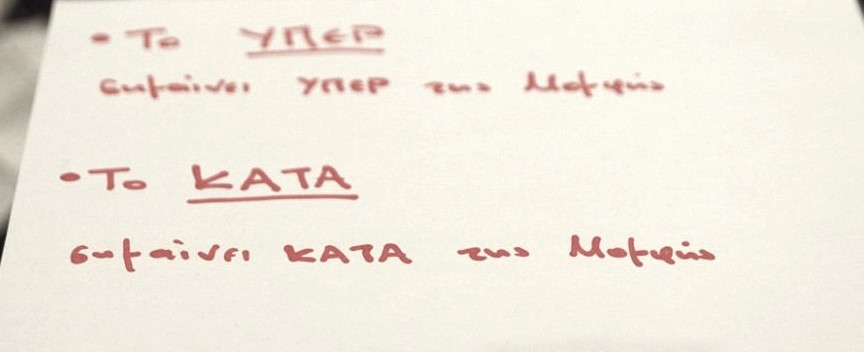 • Το ΥΠΕΡ
σημαίνει ΥΠΕΡ της Μομφής
• Το ΚΑΤΑ
σημαίνει ΚΑΤΑ της Μομφής